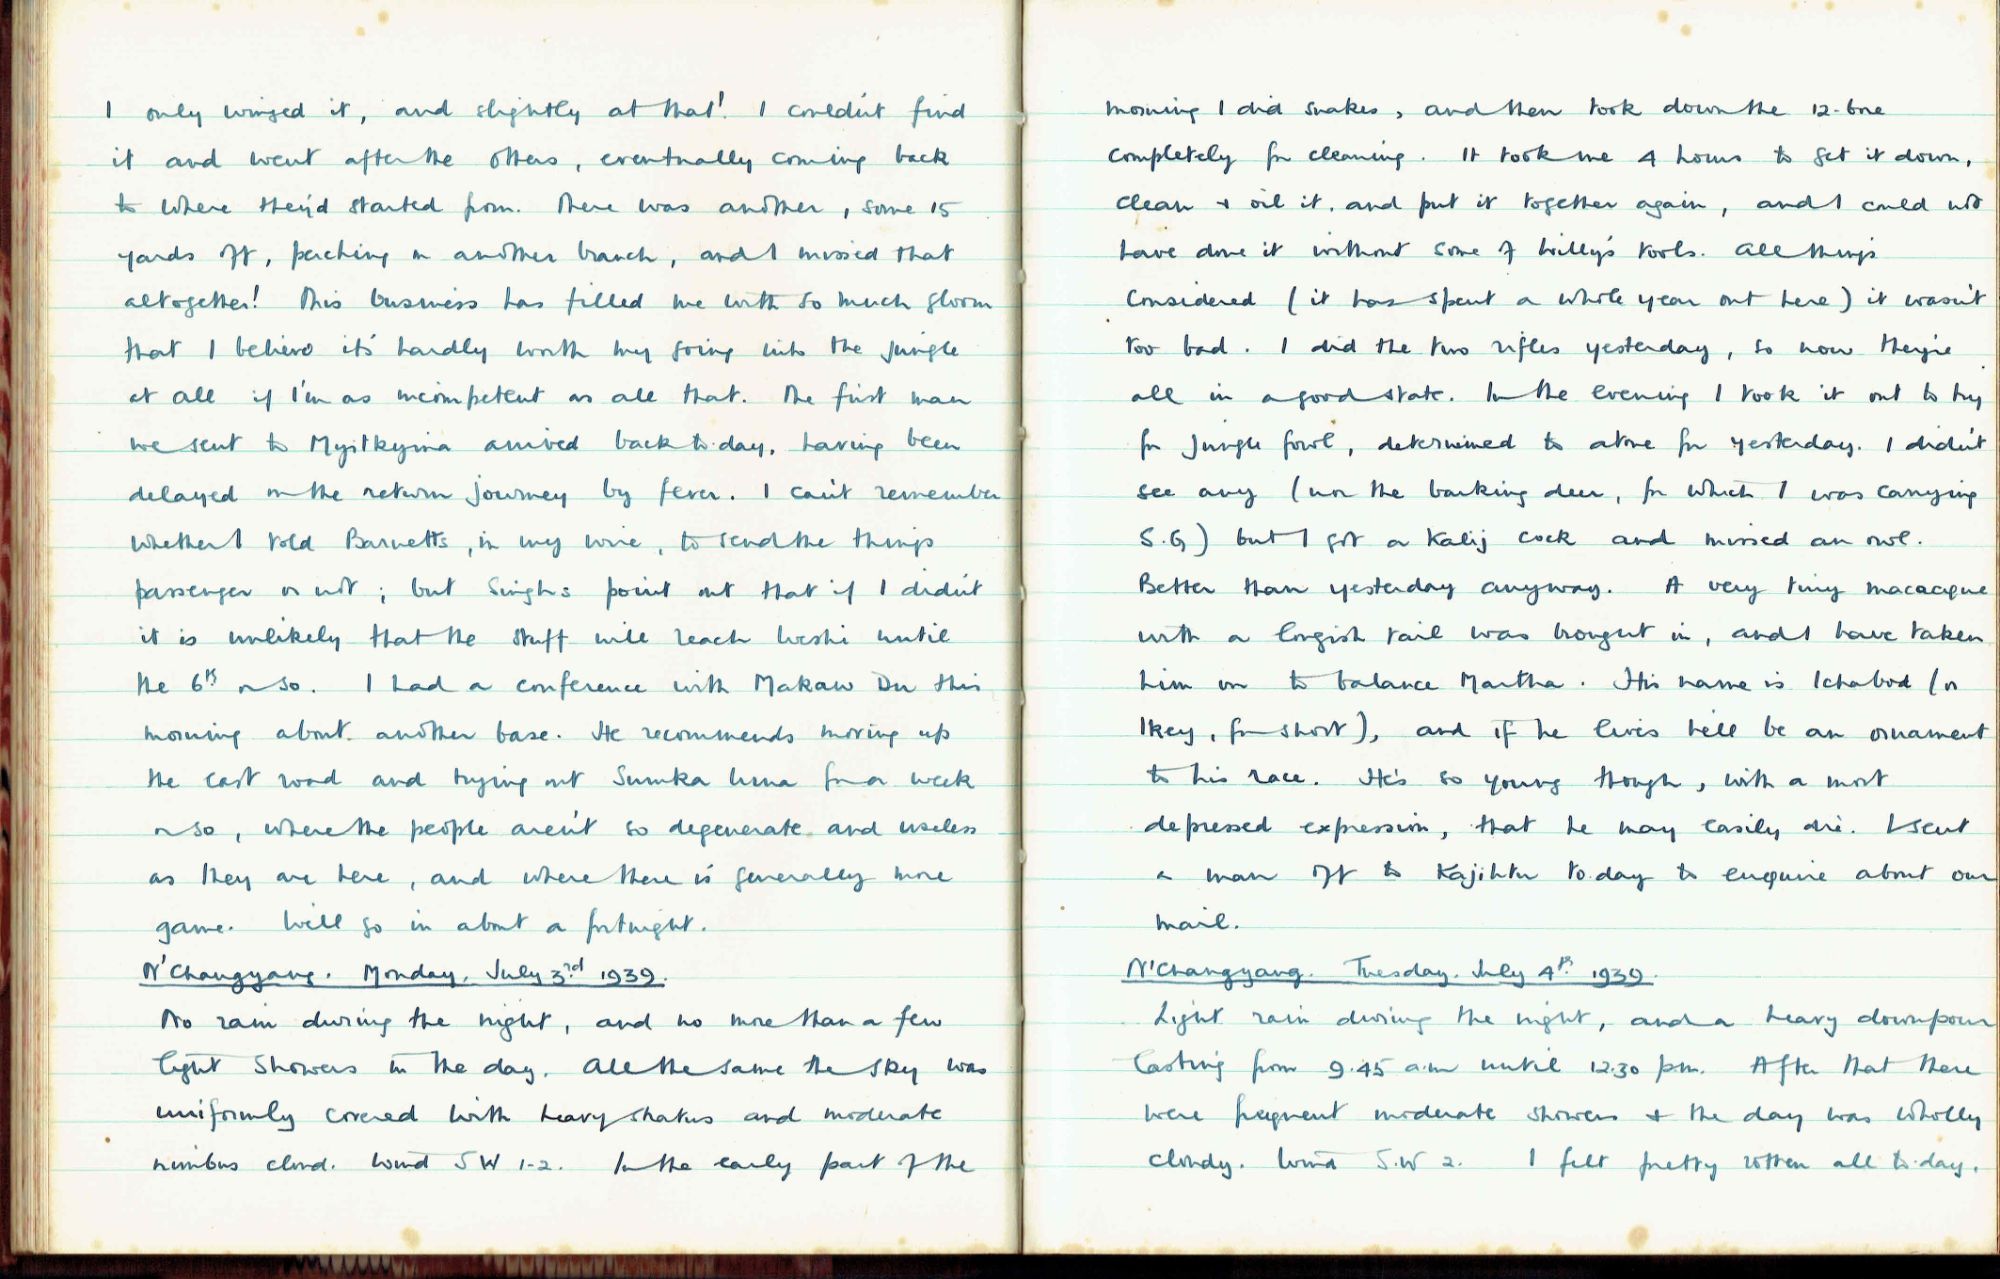 I only winged it, and slightly at that! I couldn't find
it and went after the others, eventually coming back
to where they'd started from. There was another, some 15
yards off, perching on another branch, and I missed that
altogether! This business has filled me with so much gloom
that I believe it's hardly worth my going into the jungle
at all if I'm as incompetent as all that. The first man
we sent to Myitkyina arrived back to-day, having been
delayed on the return journey by fever. I can't remember
whether I told Barnetts, in my wire, to send the things
passenger or not; but Singhs point out that if I didn't
it is unlikely that the stuff will reach Weshi until
the 6th or so. I had a conference with Makaw Du this
morning about another base. He recommends moving up
the east road and trying out Sumka Uma for a week
or so, where the people aren't so degenerate and useless
as they are here, and where there is generally more
game. Will go in about a fortnight.
N'Changyang. Monday. July 3rd 1939.
No rain during the night, and no more than a few
light showers in the day. All the same the sky was
uniformly covered with heavy stratus and moderate
nimbus cloud. Wind SW 1-2. In the early part of the
morning I did snakes, and then took down the 12-bore
completely for cleaning. It took me 4 hours to get it down,
clean & oil it, and put it together again, and I could not
have done it without some of Willy's tools. All things
considered (it has spent a whole year out here) it wasn't
too bad. I did the two rifles yesterday, so now they're
all in a good state. In the evening I took it out to try
for jungle fowl, determined to atone for yesterday. I didn't
see any (nor the barking deer, for which I was carrying
S.G) but I got a Kalij cock and missed an owl.
Better than yesterday anyway. A very tiny macacque
with a longish tail was brought in, and I have taken
him on to balance Martha. His name is Ichabod (or
Ikey, for short), and if he lives he'll be an ornament
to his race. He's so young though, with a most
depressed expression, that he may easily die. I sent
a man off to Kajihtu to-day to enquire about our
mail.
N'Changyang. Tuesday. July 4th 1939.
Light rain during the night, and a heavy downpour
lasting from 9.45 a.m until 12.30 pm. After that there
were frequent moderate showers & the day was wholly
cloudy. Wind S.W 2. I felt pretty rotten all to-day.